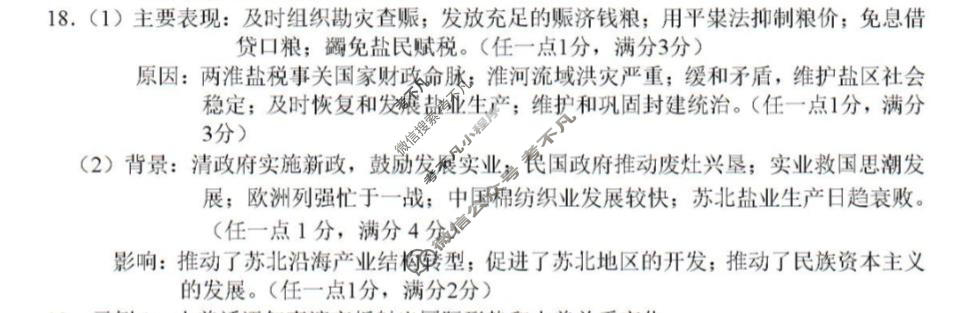 18.（1）主要表现：及时组织勘灾查赈；发放充足的赈济钱粮；用平粜法抑制粮价；免息借
贷口粮；蠲免盐民赋税。（任一点1分，满分3分）
原因：两淮盐税事关国家财政命脉；淮河流域洪灾严重；缓和矛盾，维护盐区社会
稳定；及时恢复和发展盐业生产；维护和巩固封建统治。（任一点1分，满分
3分）
（2）背景：清政府实施新政，鼓励发展实业；民国政府推动废灶兴垦；实业救国思潮发
展；欧洲列强忙于一战；中国棉纺织业发展较快；苏北盐业生产日趋衰败。
（任一点 1 分，满分 4 分）
影响：推动了苏北沿海产业结构转型；促进了苏北地区的开发；推动了民族资本主义
的发展。（任一点1分，满分2分）
微信搜索考不凡
考不凡小程序
微信公众号 考不凡